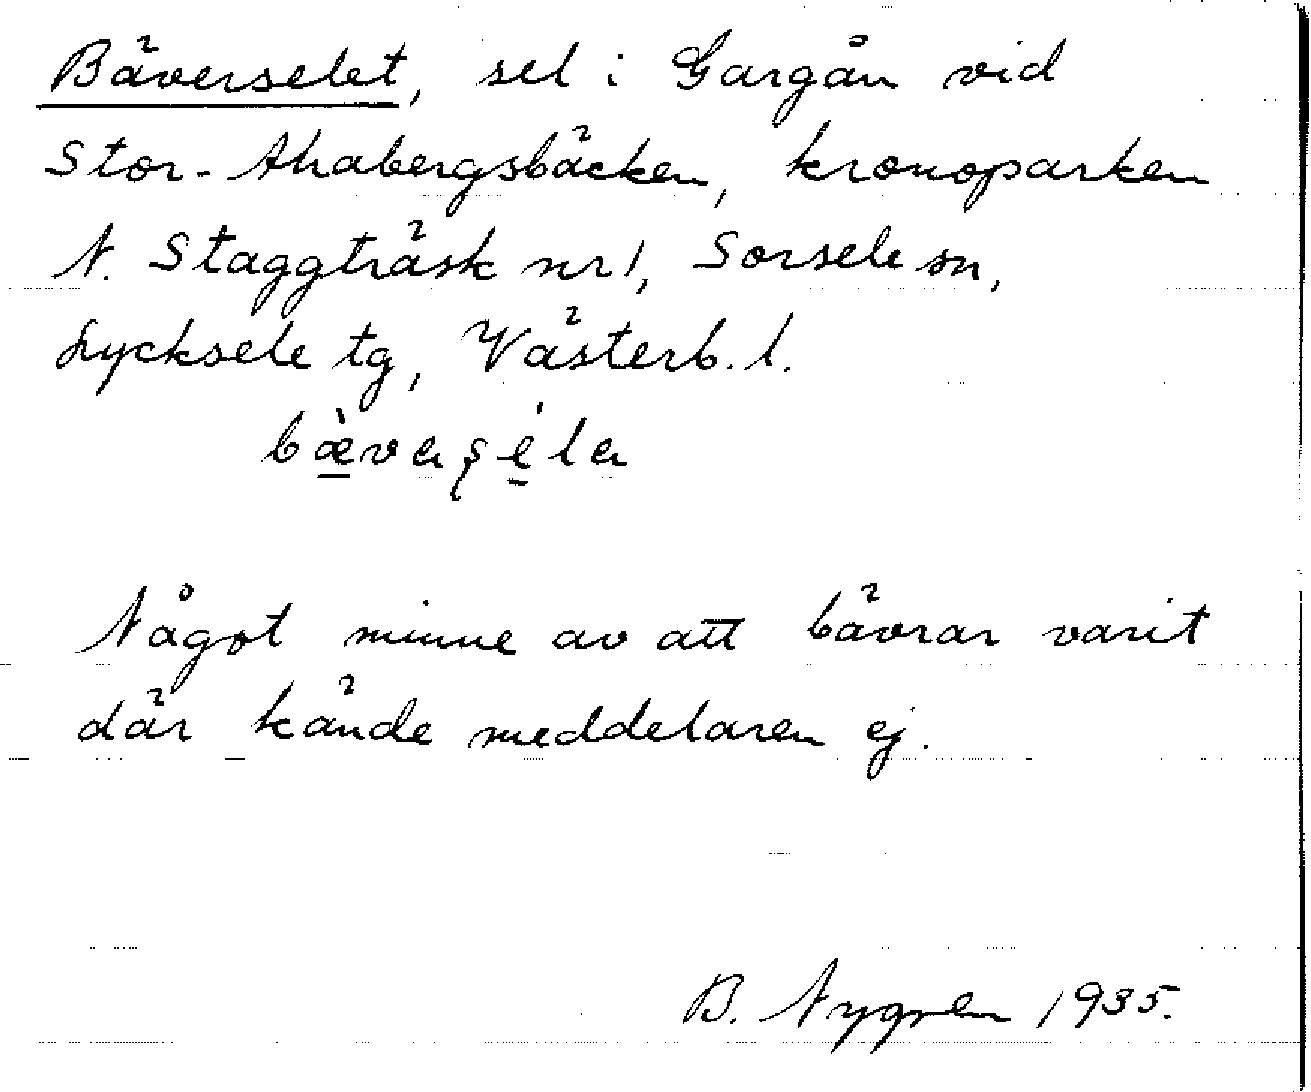 Bäverselet, sel i Gargån vid
Stor-Ahabergsbäcken, kronoparken
N. Staggträsk nr 1, Sorsele sn,
Lycksele tg, Västerb. l.
Något minne av att bävrar varit
där kände meddelaren ej.
B. Nygren 1935.